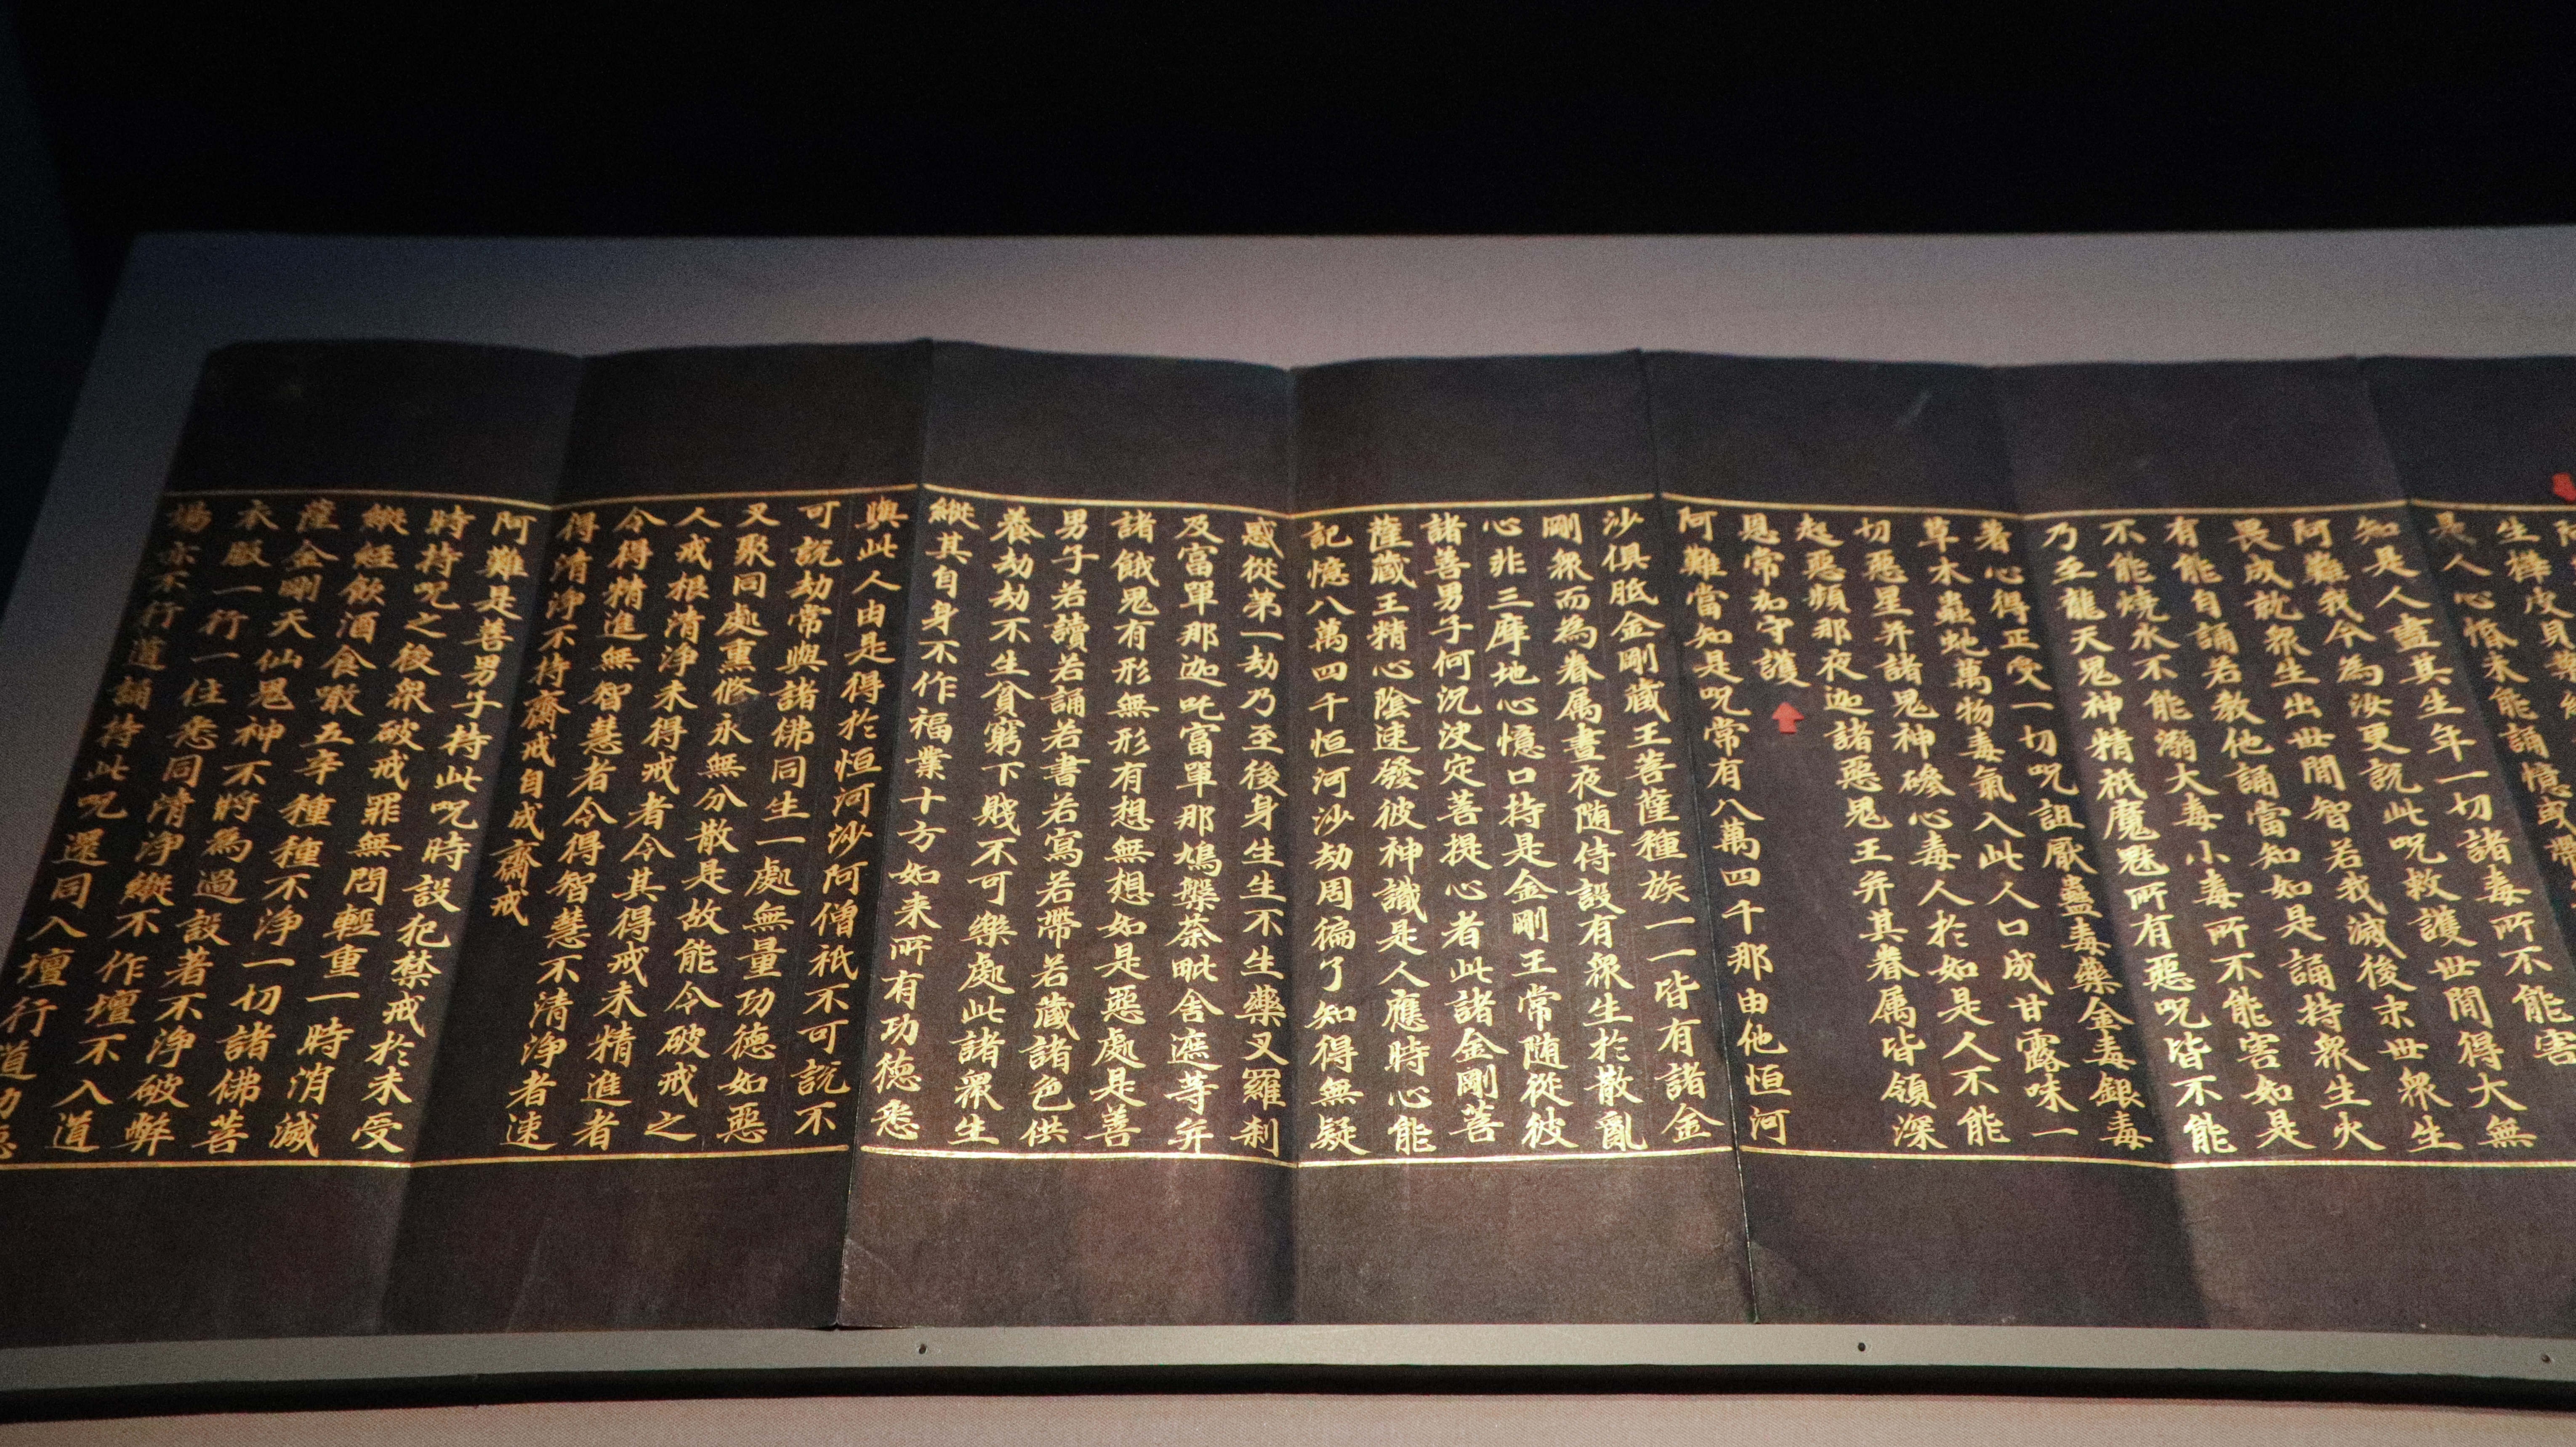 生樺皮貝
是人心惛未能誦憶或帶
知是人盡其生年一切諸毒所不能害
阿難我今為汝更說此呪救護世間得大無
畏成就眾生出世間智若我滅後末世眾生
有能自誦若教他誦當知如是誦持眾生火
不能燒水不能溺大毒小毒所不能害如是
乃至龍天鬼神精祇魔魅所有惡呪皆不能
著心得正受一切呪詛厭蠱毒藥金毒銀毒
草木蟲虵萬物毒氣入此人口成甘露味一
切惡星并諸鬼神磣心毒人於如是人不能
起惡頻那夜迦諸惡鬼王并其眷属皆領深
恩常加守護
阿難當知是呪常有八萬四千那由他恒河
沙俱胝金剛藏王菩薩種族一一皆有諸金
剛眾而為眷属晝夜随侍設有眾生於散亂
心非三摩地心憶口持是金剛王常随從彼
諸善男子何況決定菩提心者此諸金剛菩
薩藏王精心陰速發彼神識是人應時心能
記憶八萬四千恒河沙劫周徧了知得無疑
惑從第一劫乃至後身生生不生藥叉羅剎
及富單那迦吒富單那鳩槃荼毗舍遮等并
諸餓鬼有形無形有想無想如是惡處是善
男子若讀若誦若書若寫若帶若藏諸色供
養劫劫不生貧窮下賤不可樂處此諸眾生
縱其自身不作福業十方如来所有功德悉
與此人由是得於恒河沙阿僧祇不可說不
可說劫常與諸佛同生一處無量功德如惡
叉聚同處熏修永無分散是故能令破戒之
人戒根清淨未得戒者令其得戒未精進者
令得精進無智慧者令得智慧不清淨者速
得清淨不持齋戒自成齋戒
阿難是善男子持此呪時設犯禁戒於未受
時持呪之後眾破戒罪無問輕重一時消滅
縱經飲酒食噉五辛種種不淨一切諸佛菩
薩金剛天仙鬼神不將為過設著不淨破弊
衣服一行一住悉同清淨縱不作壇不入道
場亦不行道誦持此呪還同入壇行道功德